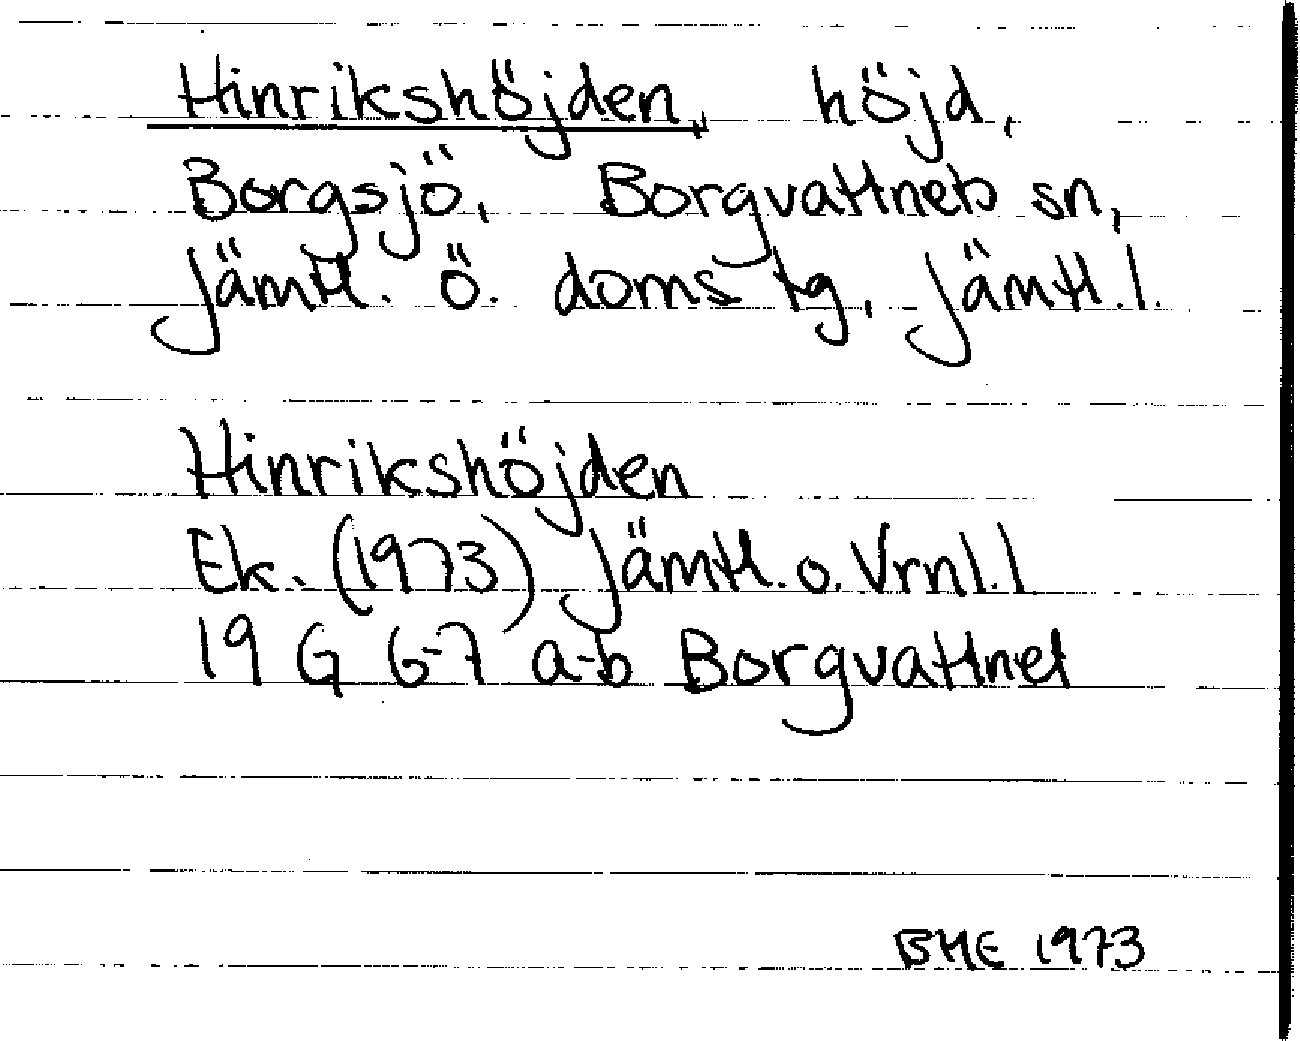 Hinrikshöjden, höjd,
Borgsjö, Borgvattnets sn,
Jämtl. ö. doms tg, Jämtl. l.
Hinrikshöjden
Ek. (1973) Jämtl. o. Vrnl. l
19 G 6-7 a-b Borgvattnet
BME 1973